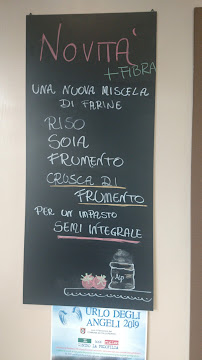 NOVITA'
+FIBRA
UNA NUOVA MISCELA
DI FARINE
RISO
SOIA
FRUMENTO
CRUSCA DI
FRUMENTO
PER UN IMPASTO
SEMI INTEGRALE
URLO DEGLI
ANGELI 2019